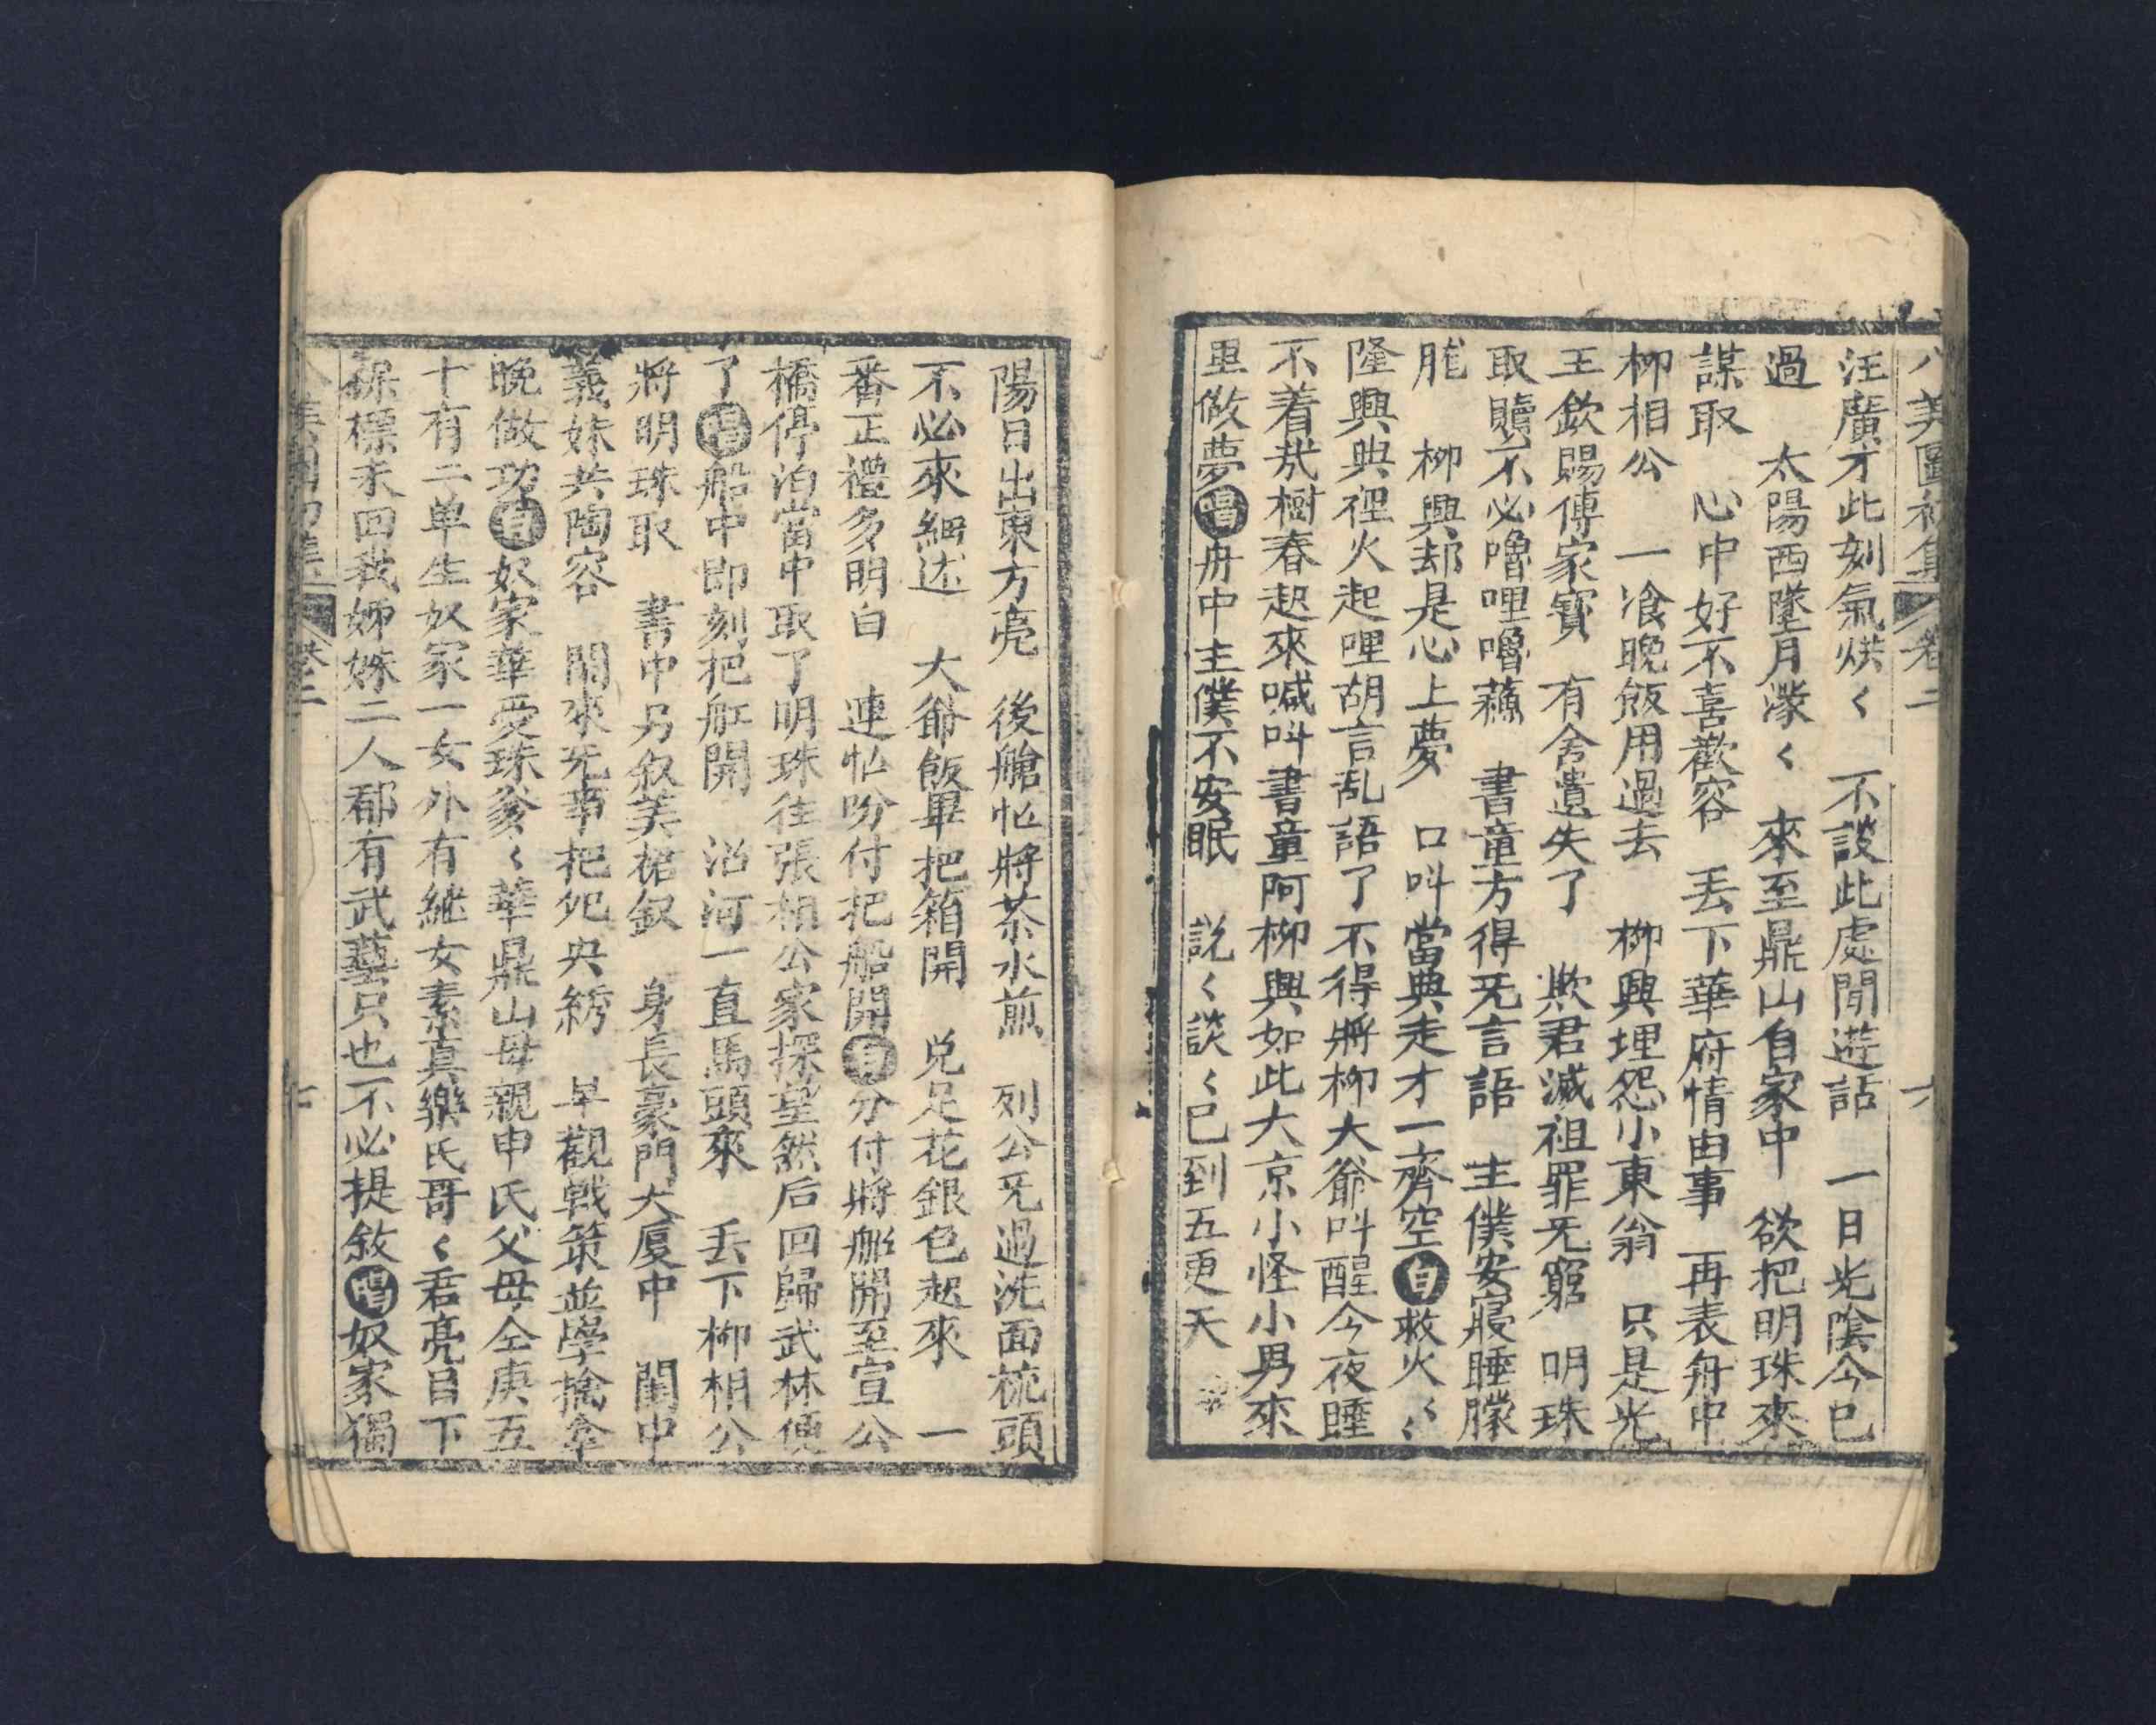 八美圖初集 卷二 六
汪廣才此刻氣烘く 不談此處閒遊話 一日光陰今已
過 太陽西墜月濛く 來至鼎山自家中 欲把明珠來
謀取 心中好不喜歡容 丟下華府情由事 再表舟中
柳相公 一飡晚飯用過去 柳興埋怨小東翁 只是光
王欽賜傳家寶 有舍遺失了 欺君滅祖罪旡窮 明珠
取贖不必嚕哩嚕蘇 書童方得旡言語 主僕安寢睡朦
朧 柳興却是心上夢 口叫當典走才一齊空白救火くく
隆興典裡火起哩胡言乱語了不得將柳大爺叫醒今夜睡
不着哉樹春起來喊叫書童阿柳興如此大京小怪小男來
里做夢唱舟中主僕不安眠 説く談く已到五更天
陽日出東方亮 後艙忙將茶水煎 列公旡過洗面梳頭
不必來細述 大爺飯畢把箱開 兌足花銀色起來 一
番正禮多明白 連忙吩付把船開白分付將船開至宣公
橋停泊當中取了明珠往張相公家探望然后回歸武林便
了唱船中即刻把舡開 沿河一直馬頭來 丟下柳相公
將明珠取 書中另叙美裙釵 身長豪門大厦中 閨中
義妹共陶容 閒來旡事把鸳央綉 早觀戰策並學擒拿
晚做功白奴家華愛珠爹く華鼎山母親申氏父母仝庚五
十有二单生奴家一女外有継女素真樂氏哥く君亮目下
保標未回我姊妹二人都有武藝只也不必提敘唱奴家獨